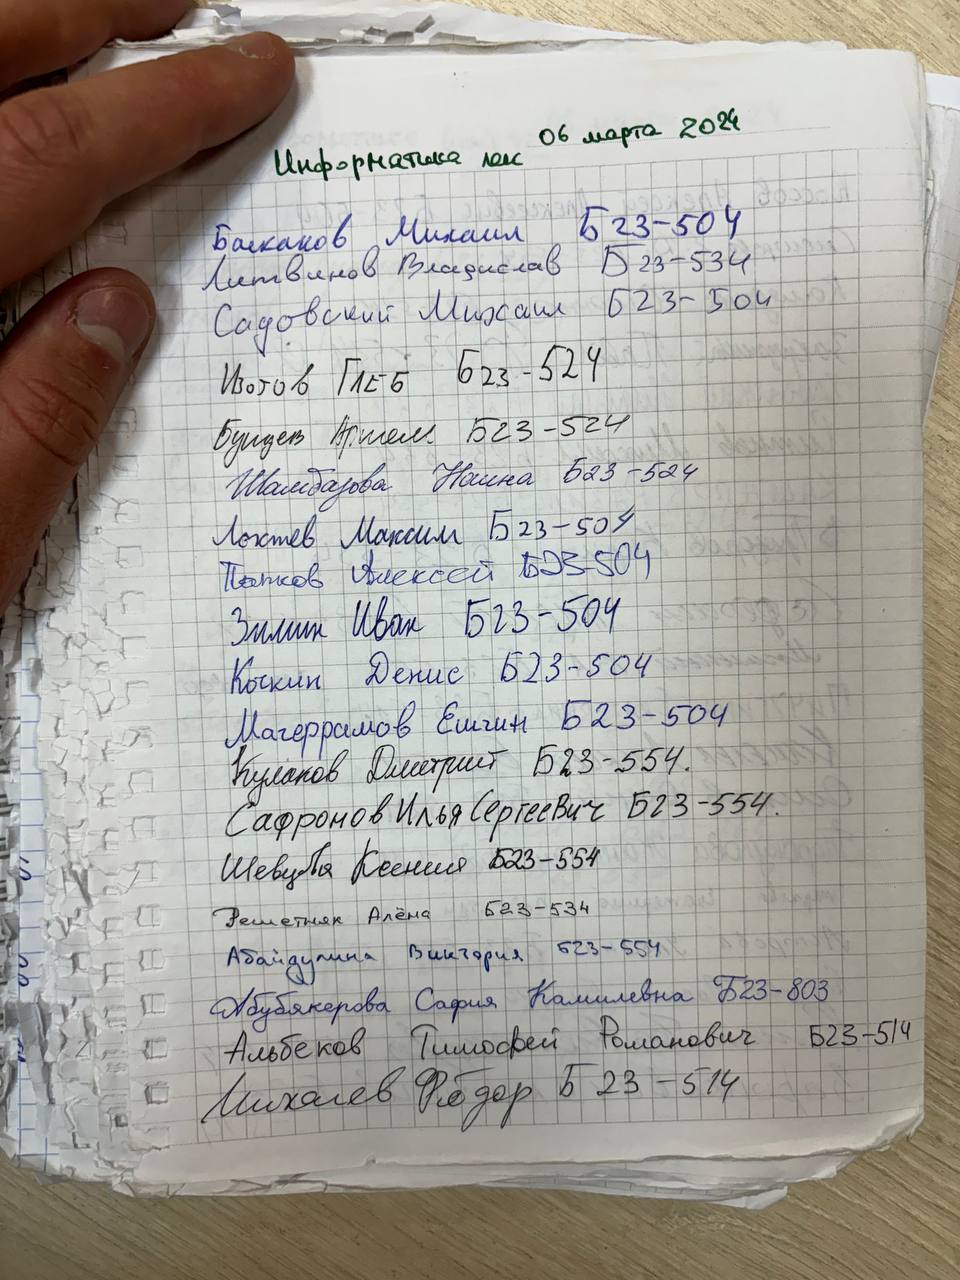 Информатика лек 06 марта 2024
Баскаков Михаил Б23-504
Литвинов Владислав Б23-534
Садовский Михаил Б23-504
Изотов Глеб Б23-524
Артем Б23-524
Шамбазова Б23-524
Локтев Максим Б23-504
Алексей Б23-504
Зимин Иван Б23-504
Коскин Денис Б23-504
Магеррамов Ешгин Б23-504
Кулаков Дмитрий Б23-554.
Сафронов Илья Сергеевич Б23-554.
Ксения Б23-554
Решетняк Алёна Б23-534
Абайдулина Виктория Б23-554
Абубякерова Сафия Камилевна Б23-803
Альбеков Тимофей Романович Б23-514
Михалев Фёдор Б23-514